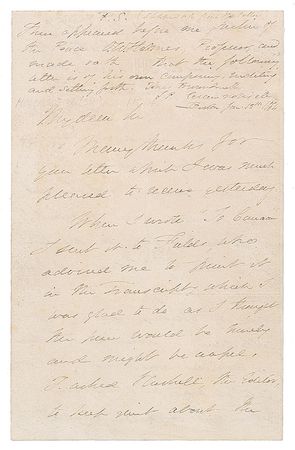 Then appeared before me Justice of
the Peace Holmes, Professor, and
made oath that the following
letter is of his own composing, inditing
and setting forth.
Boston Jan
My dear Sir
Many thanks for
your letter which I was much
pleased to receive yesterday.
When I wrote "To Canaan
I sent it to Fields, who
advised me to print it
in the Transcript, which I
was glad to do as I thought
the piece would be timely
and might be
I asked the Editor,
to keep quiet about the